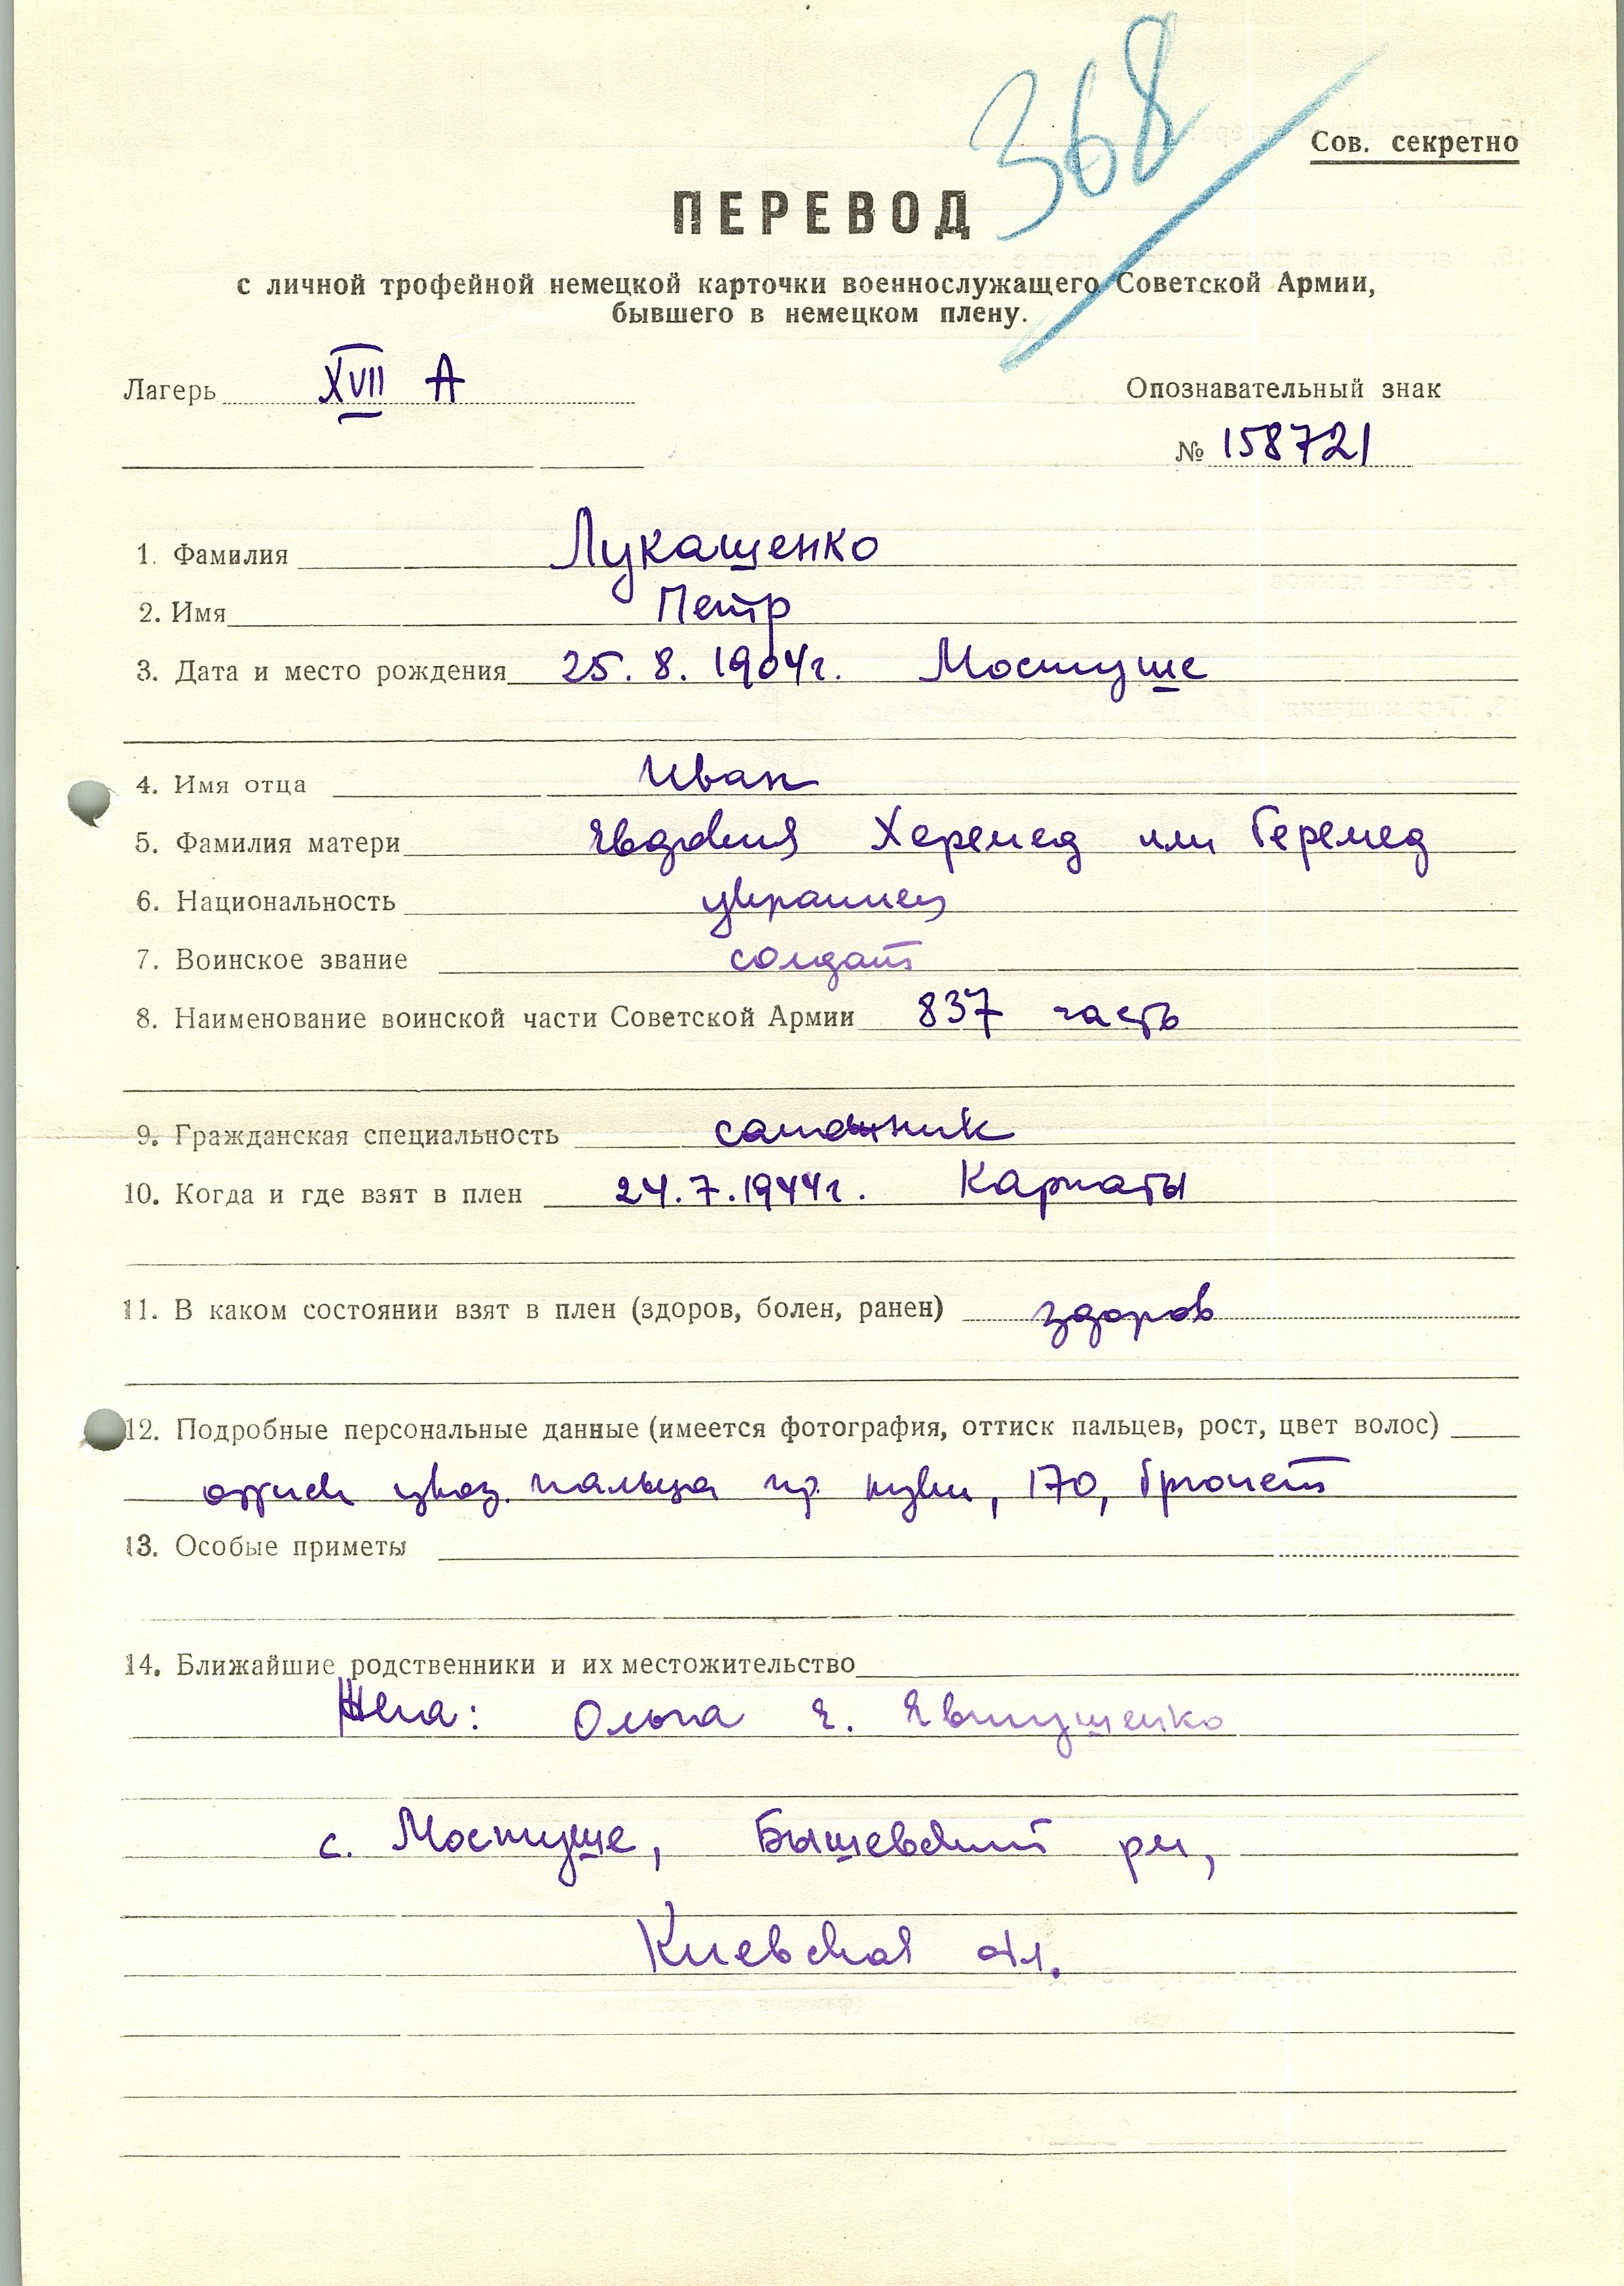 368
Сов. секретно
ПЕРЕВОД
с личной трофейной немецкой карточки военнослужащего Советской Армии,
бывшего в немецком плену.
Лагерь XVII A
Опознавательный знак
№ 158721
1. Фамилия Лукашенко
2. Имя Петр
3. Дата и место рождения 25. 8. 1904г. Мостуше
4. Имя отца Иван
5. Фамилия матери Евдокия Херемед или Геремед
6. Национальность украинец
7. Воинское звание солдат
8. Наименование воинской части Советской Армии 837 часть
9. Гражданская специальность
10. Когда и где взят в плен 24.7.1944г. Карпаты
11. В каком состоянии взят в плен (здоров, болен, ранен) здоров
12. Подробные персональные данные (имеется фотография, оттиск пальцев, рост, цвет волос)
оттиск указ. пальца пр. руки, 170, брюнет
13. Особые приметы
14. Ближайшие родственники и их местожительство
Жена: Ольга Е. Евтушенко
с. Мостуше, Бышевский рн,
Киевская обл.